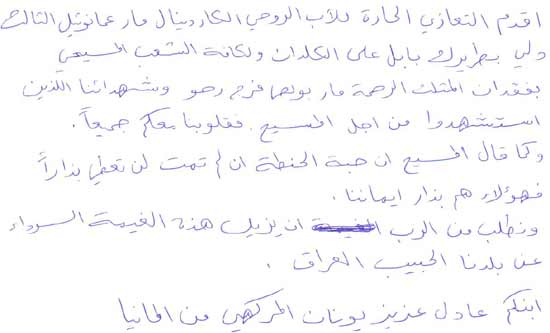 اقدم التعازي الحارة للأب الروحي الكاردينال مار عمانوئيل الثالث
دلي بطريرك بابل على الكلدان ولكافة الشعب المسيحي
بفقدان المثلث الرحمة مار بولص فرج رحو وشهدائنا اللذين
استشهدوا من اجل المسيح. فقلوبنا معكم جميعاً.
وكما قال المسيح ان حبة الحنطة ان لم تمت لن تعطي بذاراً
فهؤلاء هم بذار ايماننا.
ونطلب من الرب ان يزيل هذه الغيمة السوداء
عن بلدنا الحبيب العراق.
ابنكم عادل عزيز يونان المركهي من المانيا